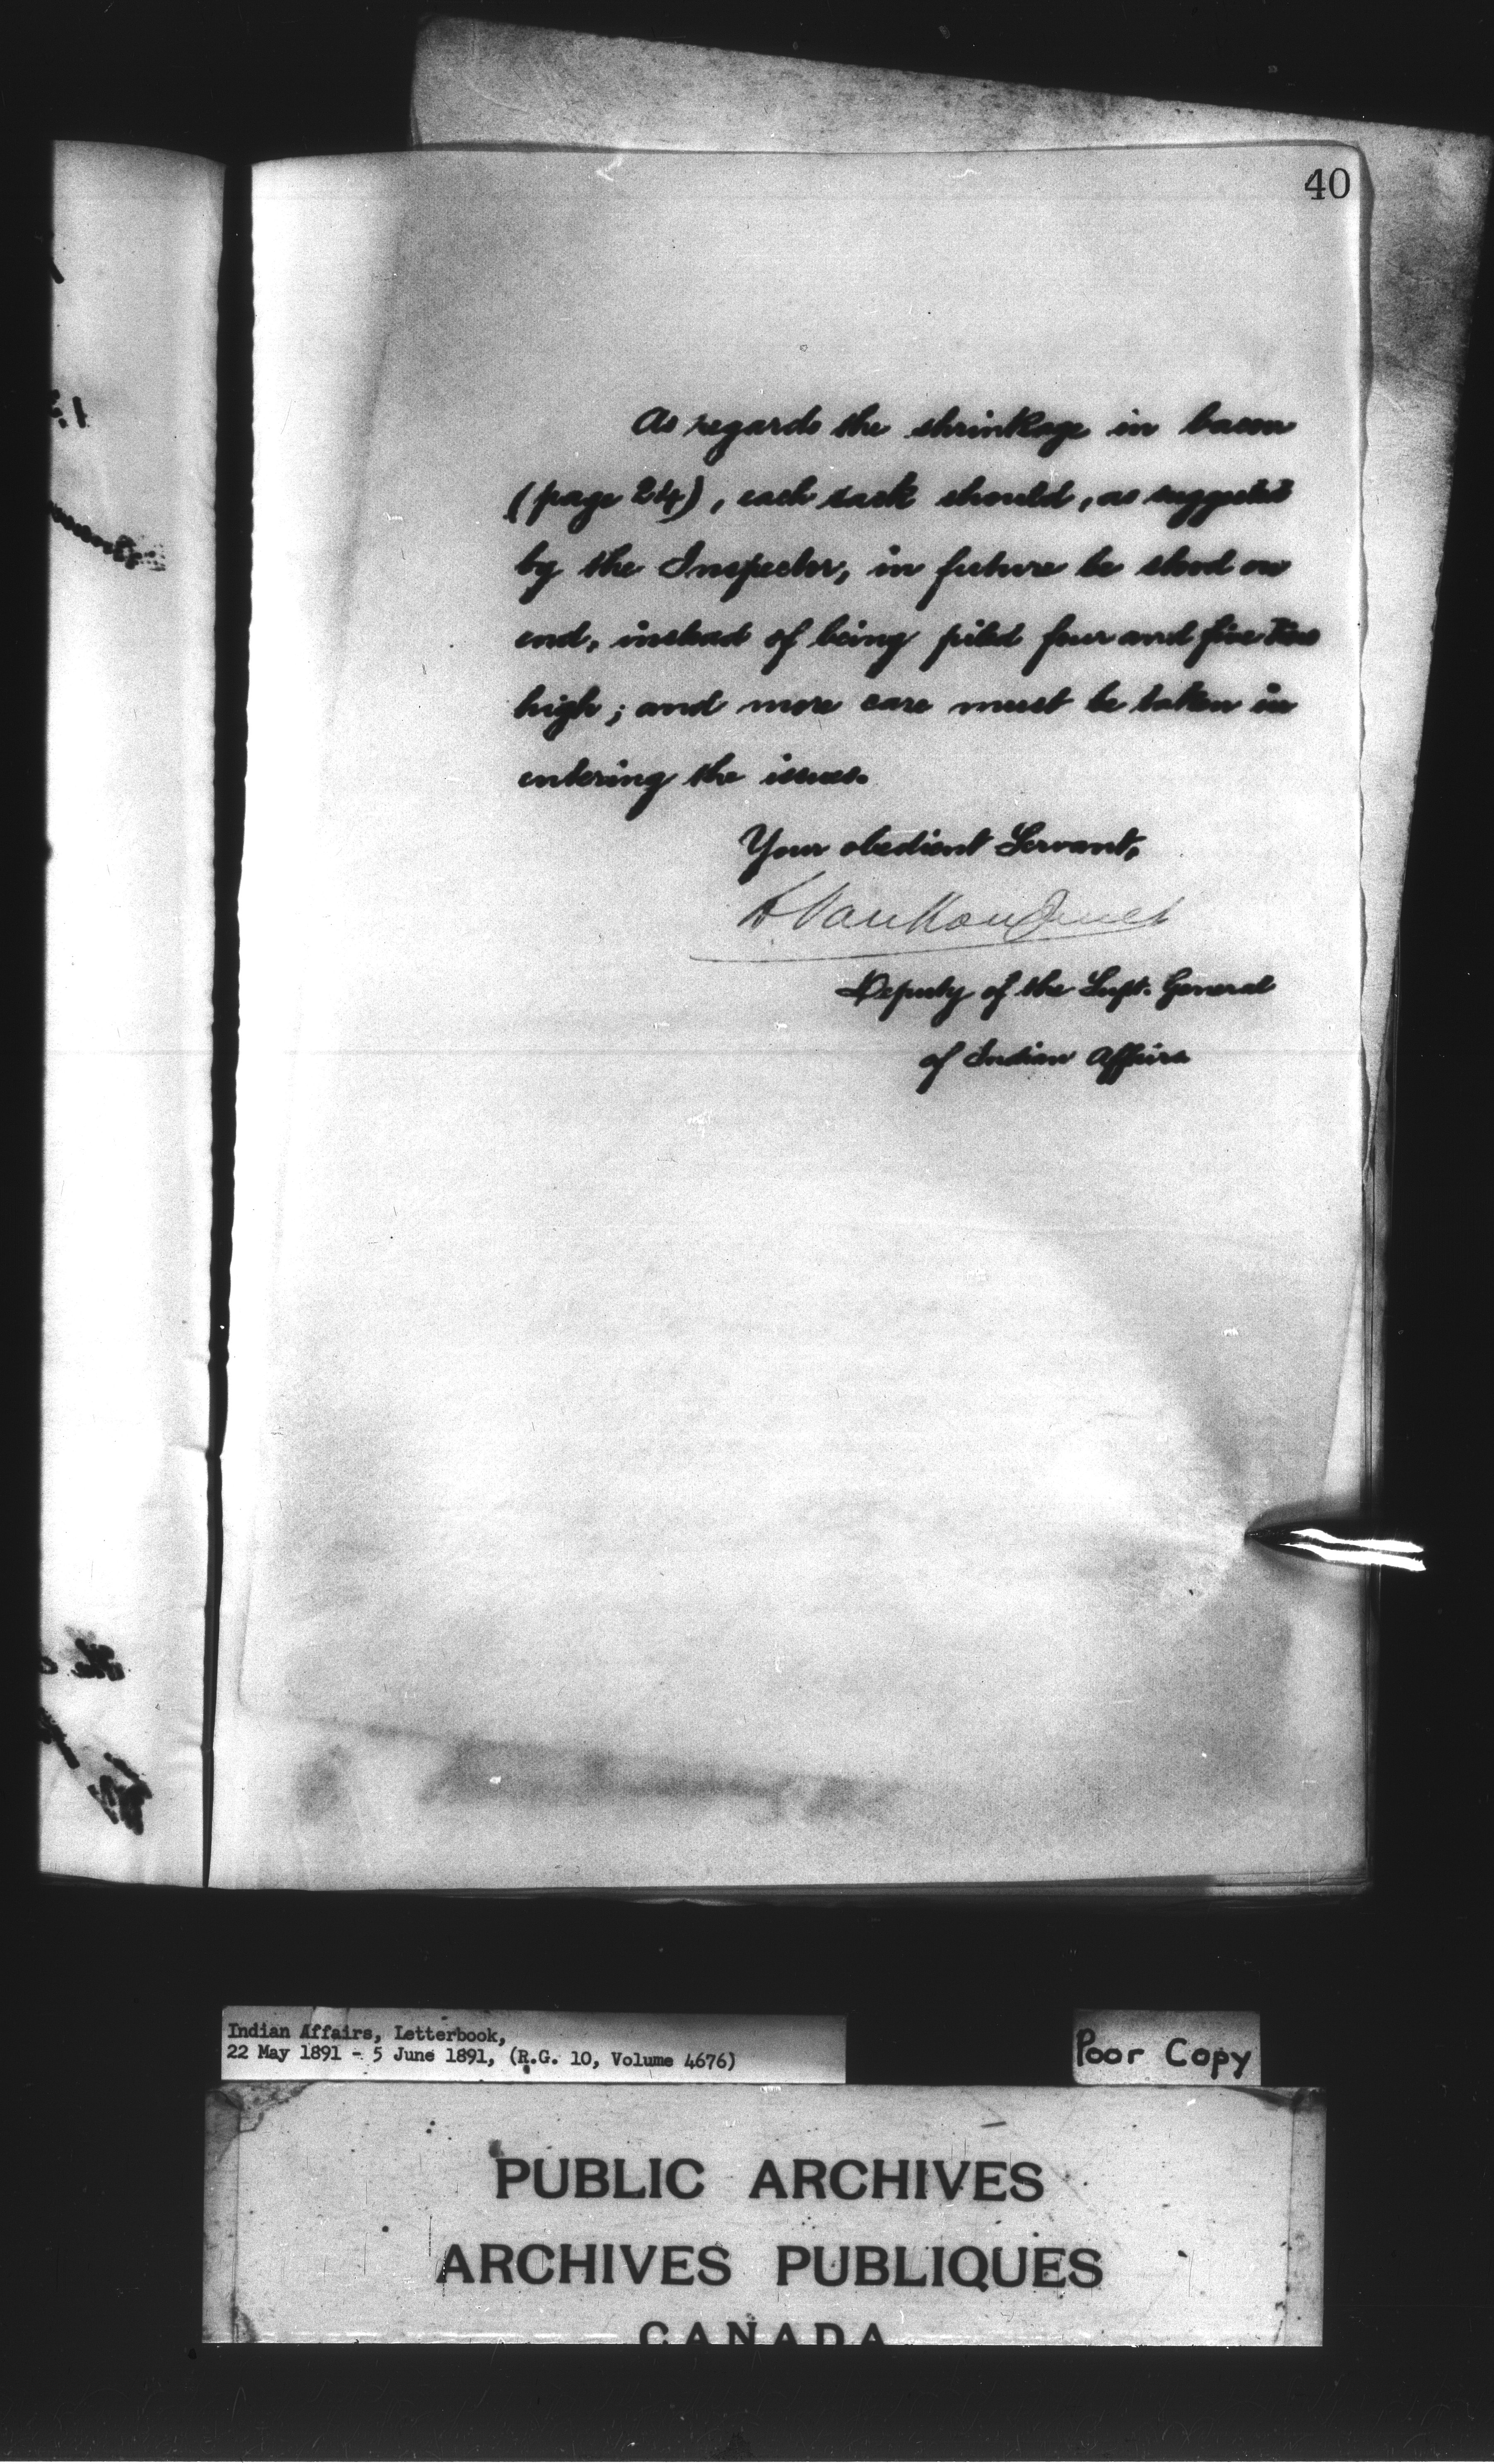 40
As regards the shrinkage in bacon
(page 24), each sack should, as suggested
by the Inspector, in future be stood on
end, instead of being piled four and five tiers
high; and more care must be taken in
entering the issues.
Your obedient Servant,
L VanKoughnet
Deputy of the Supt. General
of Indian Affairs
the
Indian Affairs, Letterbook,
22 May 1891 - 5 June 1891, (R.G. 10, Volume 4676)
Poor Copy
PUBLIC ARCHIVES
ARCHIVES PUBLIQUES
CANADA